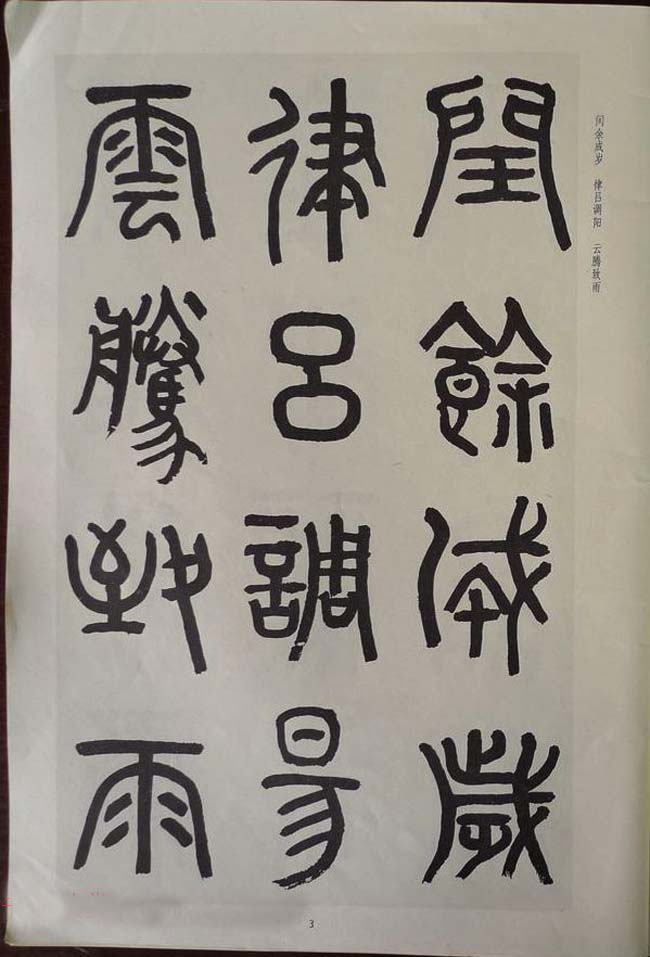 闰余成岁 律吕调阳 云腾致雨
閏餘成歲
律呂調昜
雲騰致雨
3